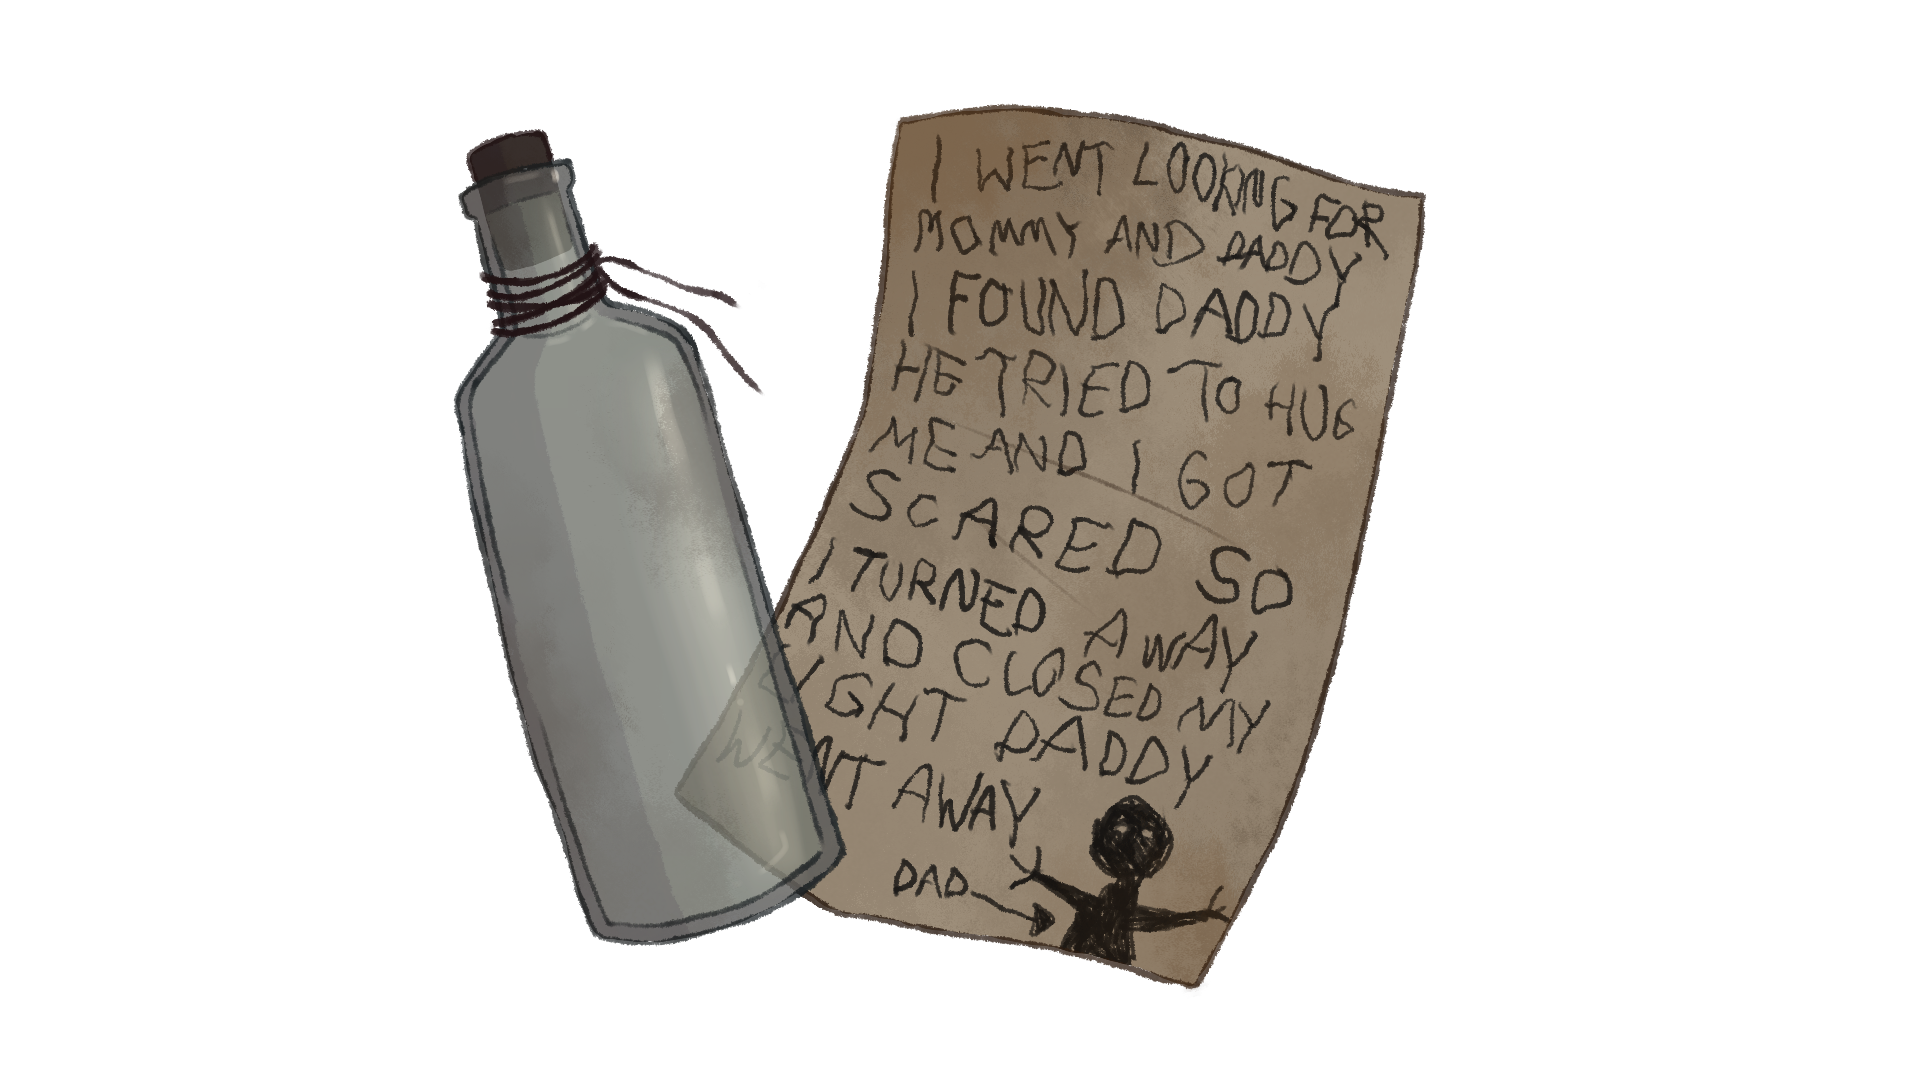 I WENT LOOKING FOR
MOMMY AND DADDY
I FOUND DADDY
HE TRIED TO HUG
ME AND I GOT
SCARED SO
I TURNED AWAY
AND CLOSED MY
LIGHT DADDY
WENT AWAY
DAD